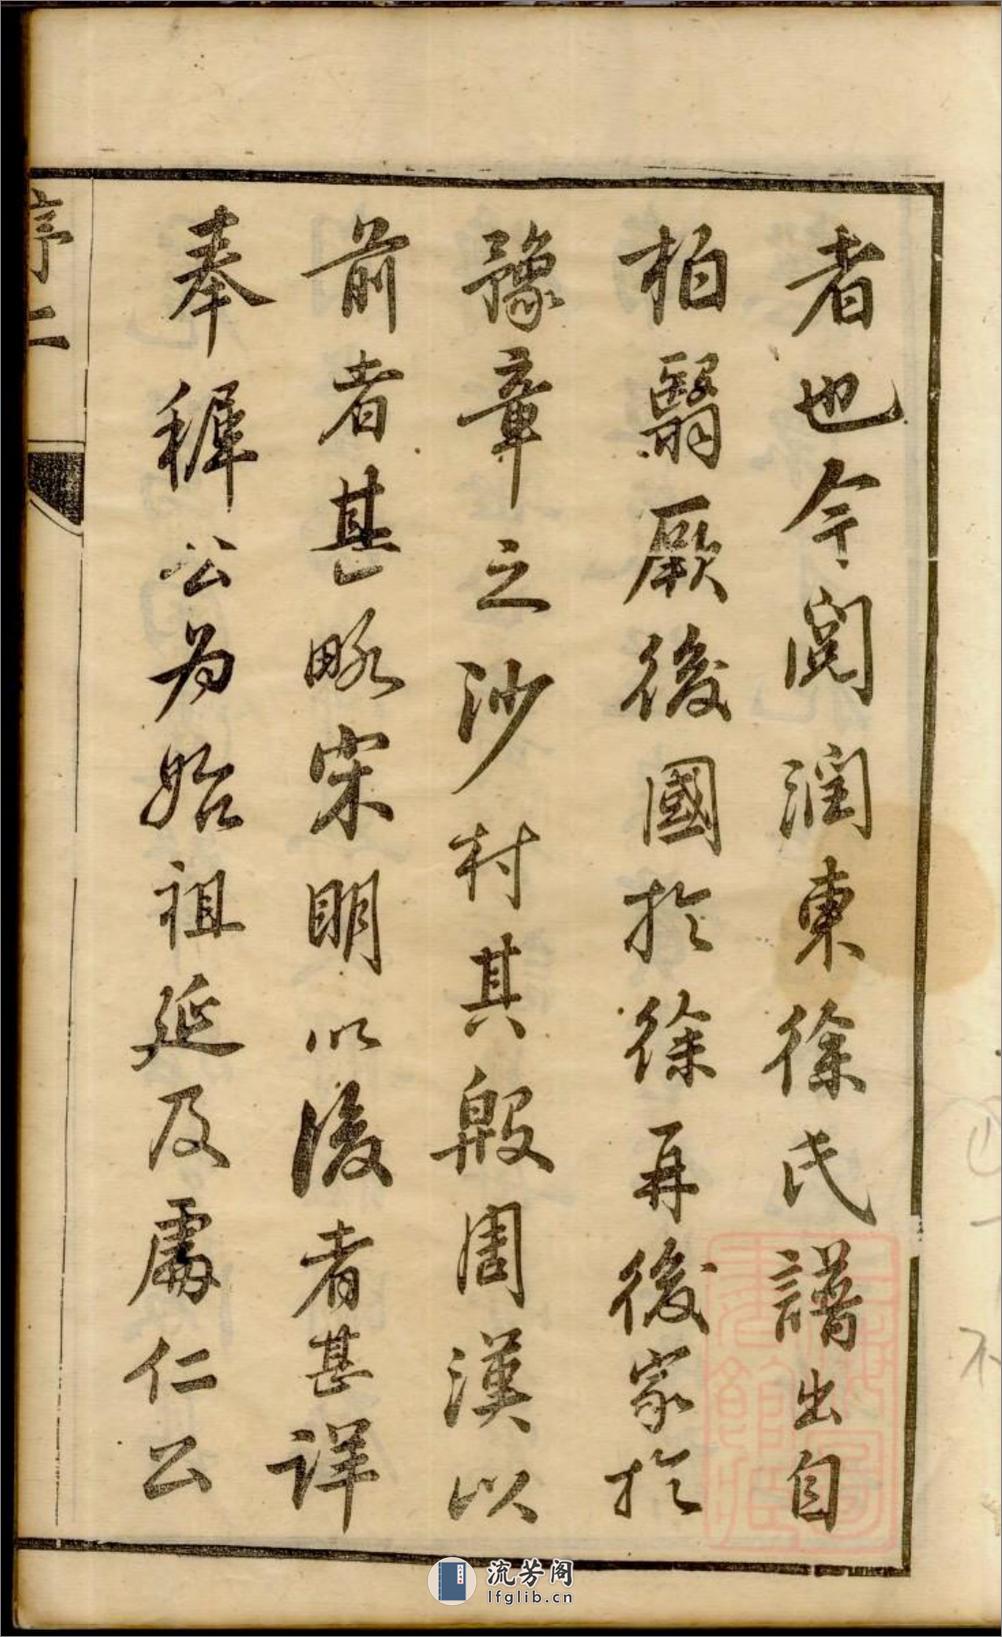 者也今閱潤東徐氏譜出自
柏翳厥後國於徐再後家於
豫章之沙村其殷周漢以
前者甚略宋明以後者甚詳
奉穉公為始祖延及處仁公
序二
流芳阁
lfglib.cn